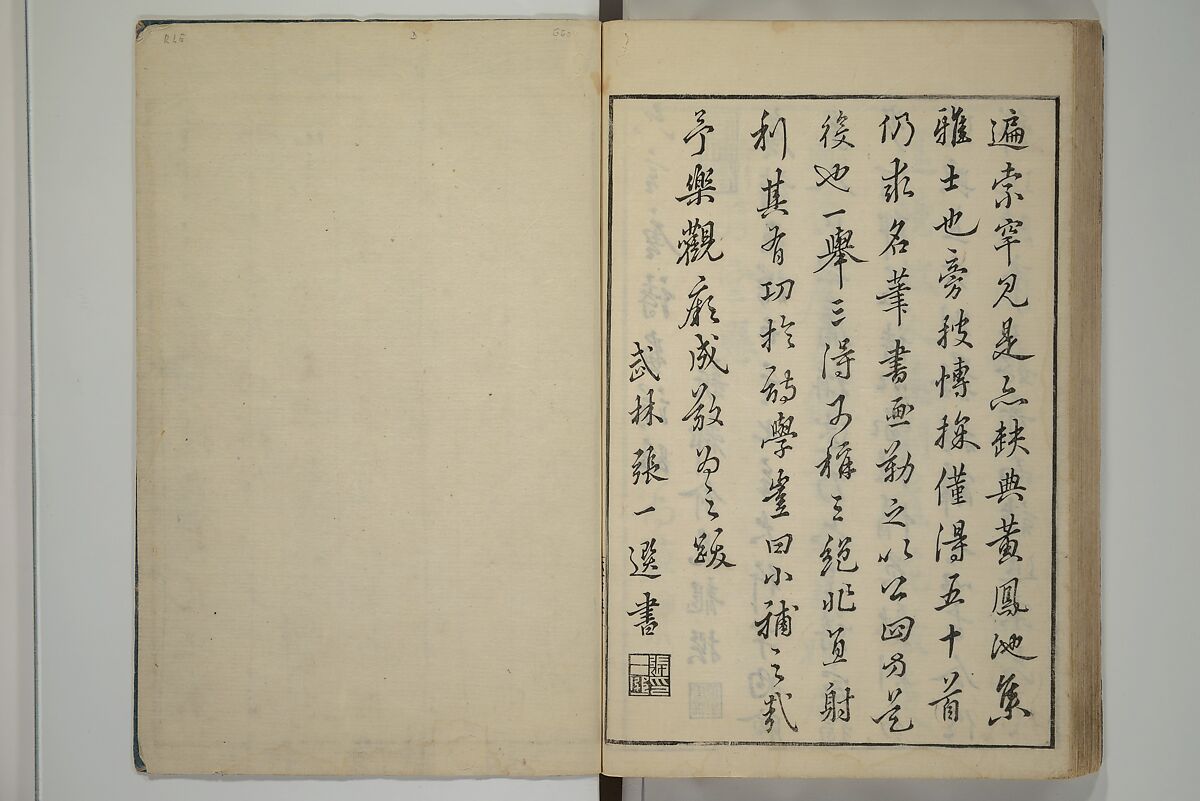 遍索罕見是亦缺典黃鳳池集
雅士也旁搜博採僅得五十首
仍求名筆書画勒之以公四方是
役也一舉三得可稱三絕非直射
利其有功於詩學豈曰小補之哉
予樂觀厥成敬為之跋
武林張一選書